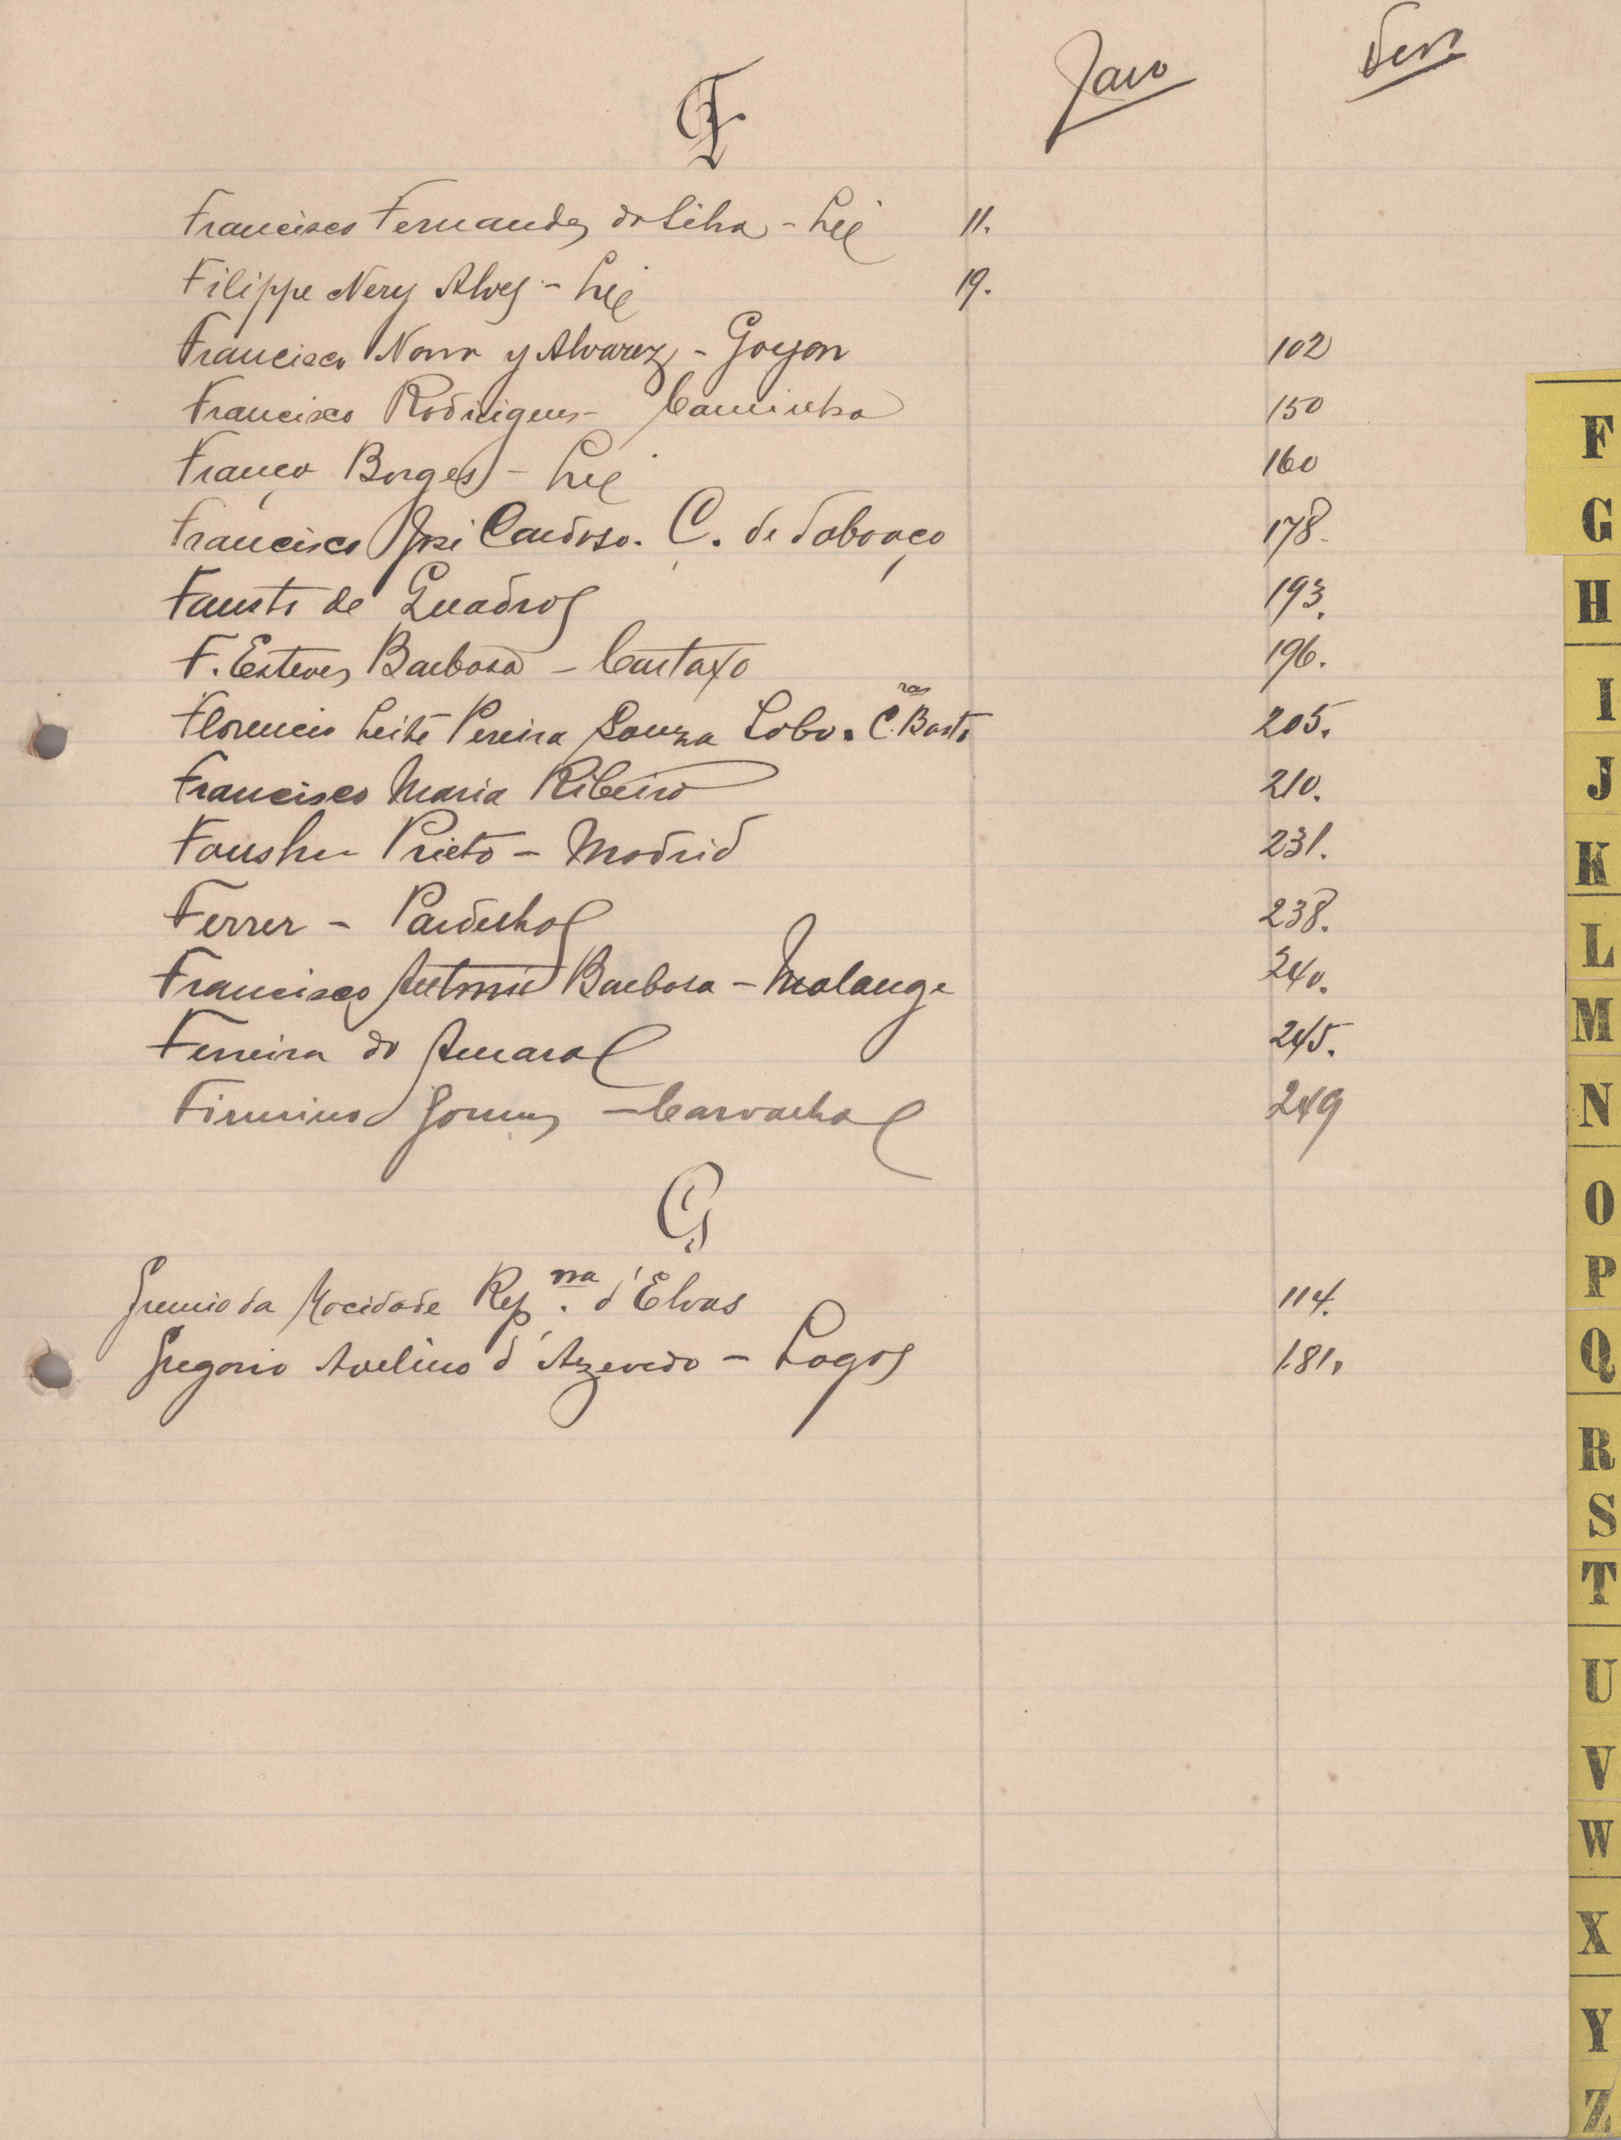 Janº Fevº
F
Francisco Fernandes da Silva - Lx 11.
Filippe Nery Alves - Lx 19.
Francisco Novoa y Alvarez - Goyon 102
Francisco Rodrigues - Caminha 150
França Borges - Lx 160
Francisco José Cardoso. C. de Taboaço 178
Fausto de Quadros 193.
F. Esteves Barbosa - Cartaxo 196.
Florencio Leite Pereira Souza Lobo. C.ras Basto 205.
Francisco Maria Ribeiro 210.
Prieto - Madrid 231.
Ferrer - Pardelhas 238.
Francisco Antonio Barbosa - Malange 240.
Ferreira do Amaral 245.
Firmino Gomes - Carvalhal 249
G
Gremio da Mocidade Rep.na d'Elvas 114.
Gregorio Avelino d'Azevedo - Lagos 181.
F
G
H
I
J
K
L
M
N
O
P
Q
R
S
T
U
V
W
X
Y
Z